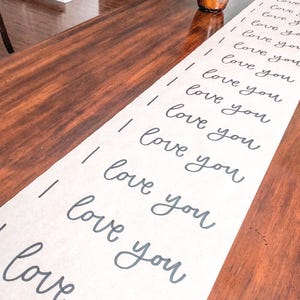 I love you
I love you
I love you
I love you
I love you
I love you
I love you
I love you
I love you
I love you
I love